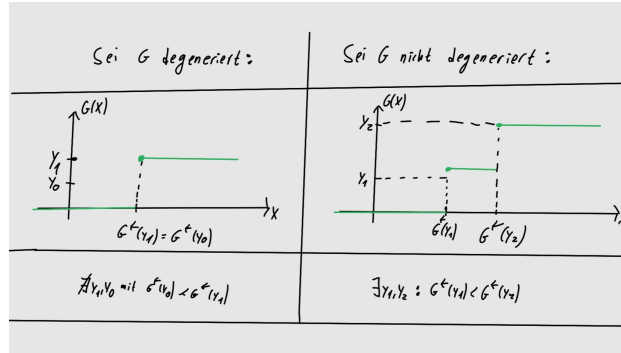 Sei G degeneriert:
Sei G nicht degeneriert:
G(X)
Y₁
Y₀
X
G^←(Y₁) = G^←(Y₀)
G(X)
Y₂
Y₁
G^←(Y₁) G^←(Y₂)
∄ Y₁,Y₀ mit G^←(Y₀) < G^←(Y₁)
∃ Y₁,Y₂ : G^←(Y₁) < G^←(Y₂)